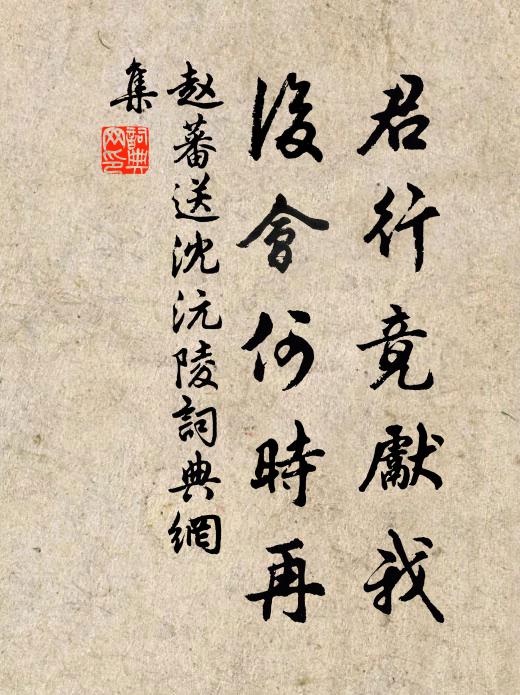 君行竟獻我
後會何時再
赵蕃送沈沅陵詞典網
集
詞典
网印